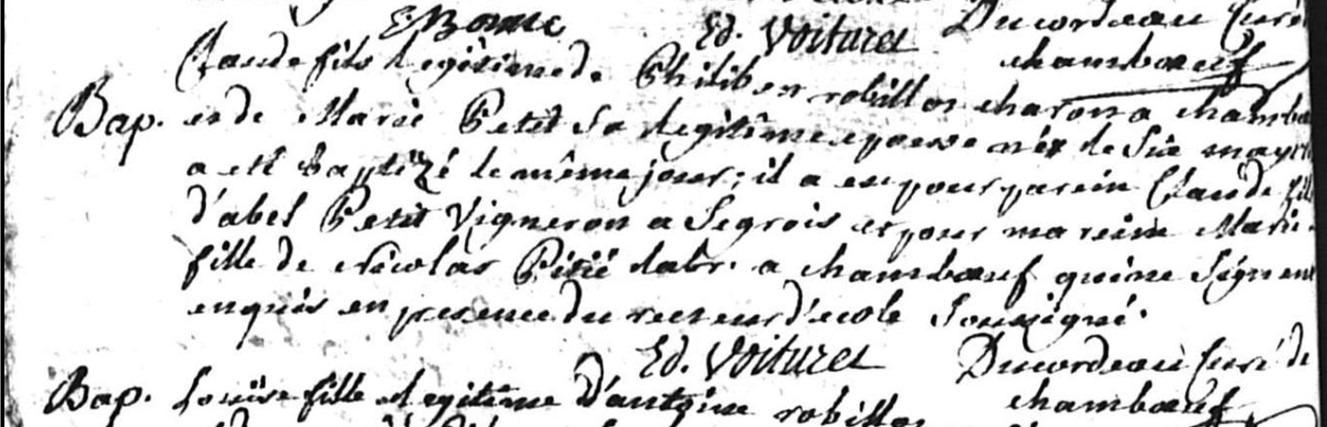 E. Bonne Ed. Voituret Ducordeau Curé
chambœuf
Claude fils legitime de Philibert robillot charon a chambœ
Bap. et de Marie Petit sa legitime epouse né le six may
a eté baptizé le même jour; il a eu pour parein Claude fil
d'abel Petit Vigneron a Segrois et pour mareine Marie
fille de Nicolas labr. a chambœuf qui ne signent
enquis en presence du recteur d'ecole soussigné.
Ed. Voituret Ducordeau Curé de
chambœuf
Bap. Louise fille legitime d'antoine robillot